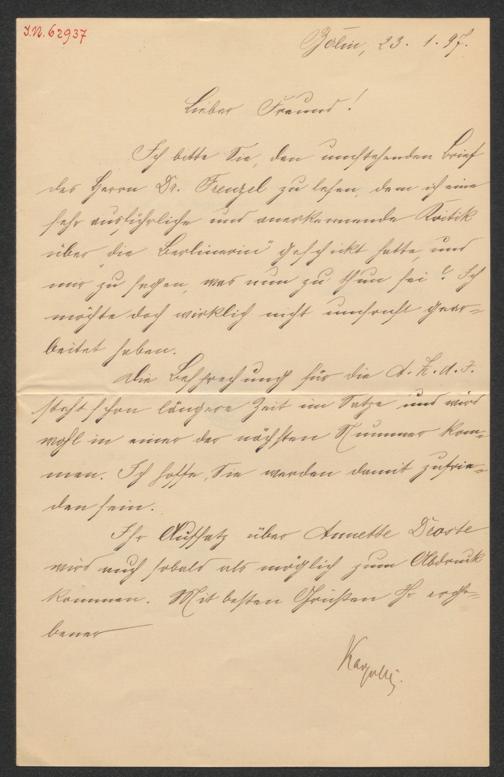 I.N. 62937
Zolin, 23. 1. 97.
Lieber Freund!
Ich bitte Sie, den umstehenden Brief
des Herrn Dr. Frenzel zu lesen, dem ich eine
sehr ausführliche und anerkennende Kritik
über die „Berlinerin" geschickt hatte, und
mir zu sagen, was nun zu thun sei? Ich
möchte doch wirklich nicht umsonst gear-
beitet haben.
Die Besprechung für die d. Z. d. J.
steht schon längere Zeit im Satze und wird
wohl in einer der nächsten Nummer kom-
men. Ich hoffe, Sie werden damit zufrie-
den sein.
Ihr Aufsatz über Annette Droste
wird auch sobald als möglich zum Abdruck
kommen. Mit besten Grüßen Ihr erge-
bener